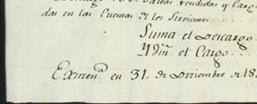 vendidas y Carga
das en las Cuentas de los Servicios
Suma el Descargo
Ydm el Cargo
Examen en 31 de Diciembre de 18